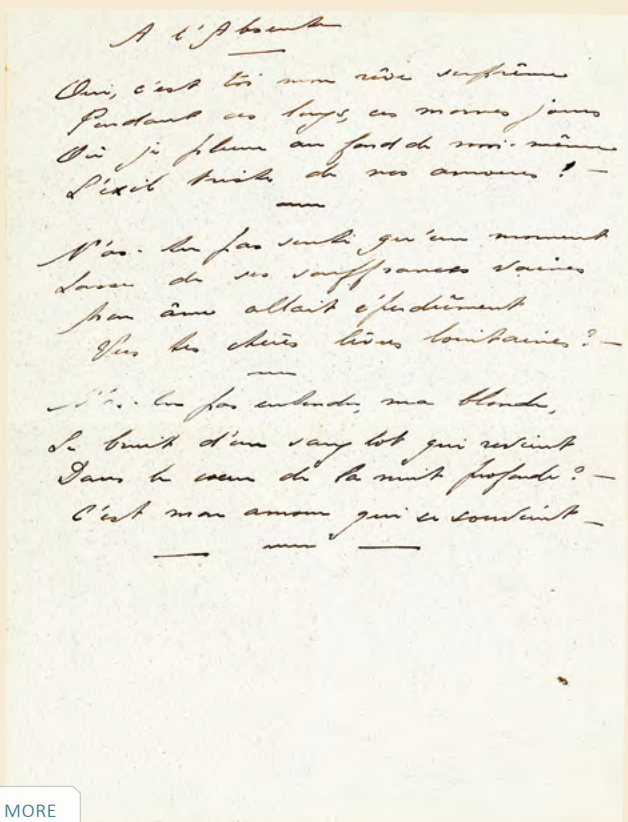 A l'Absente
Oui, c'est toi mon rêve suprême
Pendant ces longs, ces mornes jours
Où je pleure au fond de moi-même
L'exil triste de nos amours ! —
N'as-tu pas senti qu'un moment
Lasse de ses souffrances vaines
Mon âme allait éperdûment
Vers tes chères lèvres lointaines ? —
N'as-tu pas entendu, ma blonde,
Le bruit d'un sanglot qui revient
Dans le cœur de la nuit profonde ? —
C'est mon amour qui se souvient —
MORE